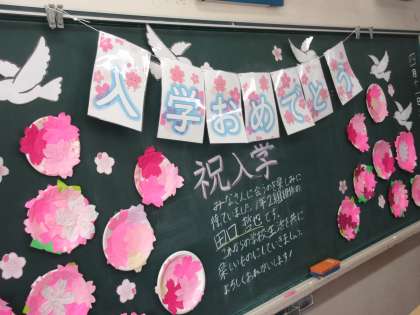 入学おめでとう
祝入学
みなさんに会うのを楽しみに
待っていました。1年2組担任の
田口 哲也です。
これからの学校生活を共に
楽しいものにしていきましょう
よろしくおねがいします！